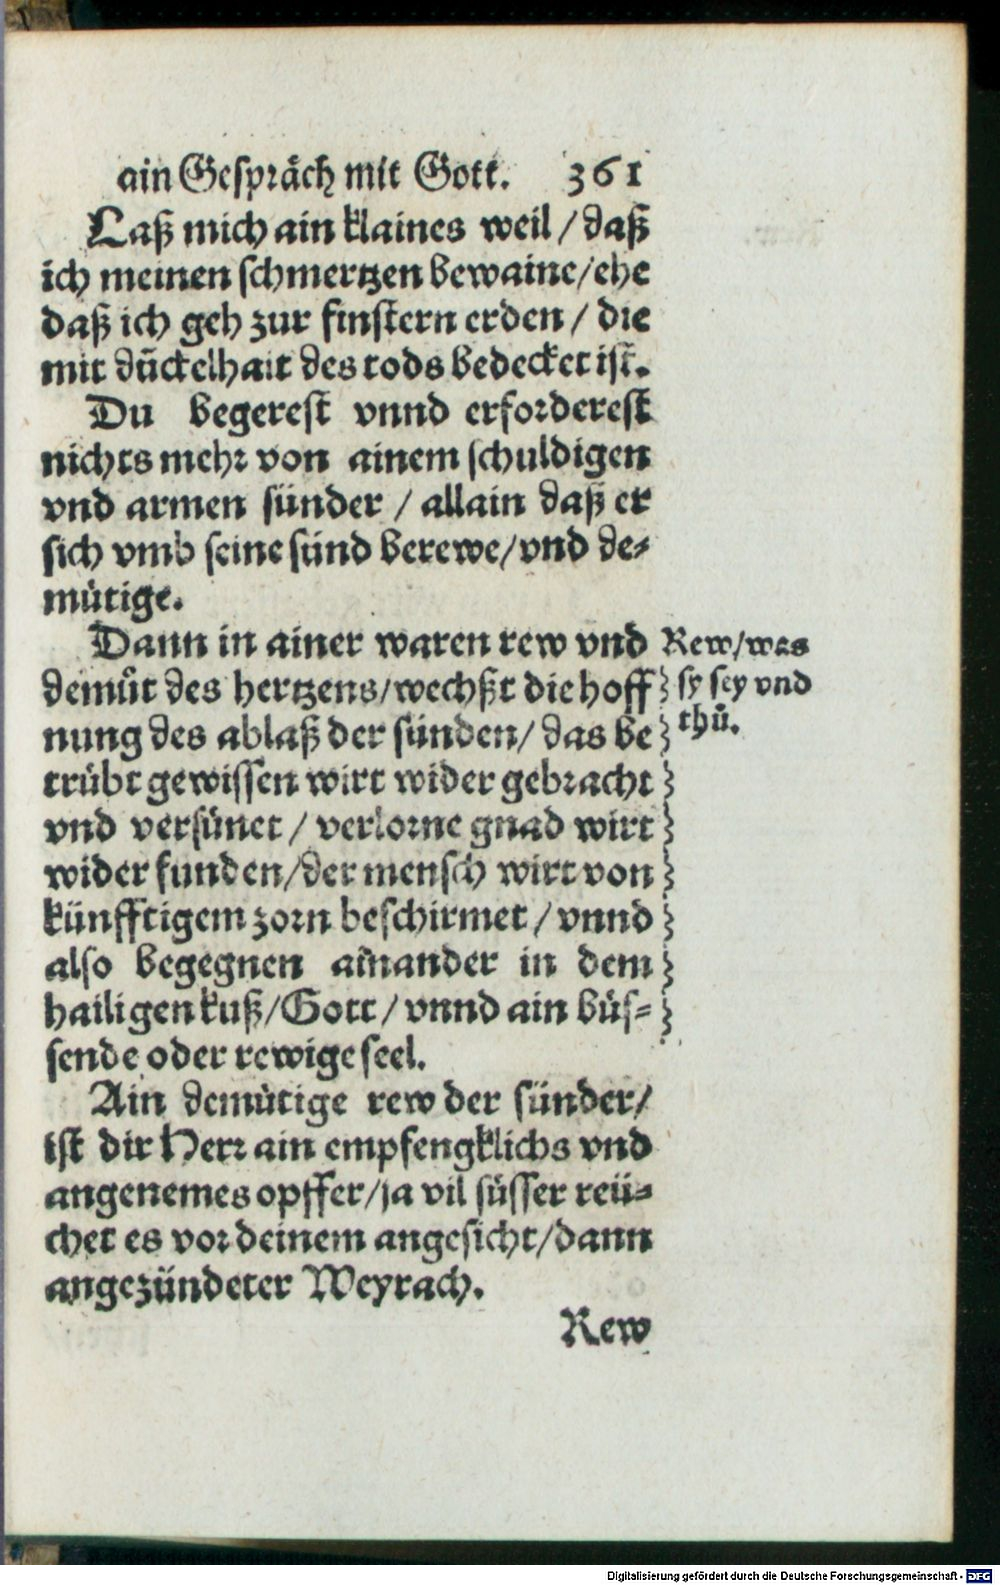 ain Gespräch mit Gott. 361
Laß mich ain klaines weil / daß
ich meinen schmertzen bewaine/ehe
daß ich geh zur finstern erden / die
mit dūckelhait des tods bedecket ist.
Du begerest vnnd erforderest
nichts mehr von ainem schuldigen
vnd armen sünder / allain daß er
sich vmb seine sünd berewe/vnd de-
mütige.
Dann in ainer waren rew vnd
demůt des hertzens/wechßt die hoff
nung des ablaß der sünden/ das be
trübt gewissen wirt wider gebracht
vnd versünet / verlorne gnad wirt
wider funden/der mensch wirt von
künfftigem zorn beschirmet / vnnd
also begegnen ainander in dem
hailigen kuß/Gott / vnnd ain büs-
sende oder rewige seel.
Rew/was
sy sey vnd
thů.
Ain demütige rew der sünder/
ist dir Herr ain empfengklichs vnd
angenemes opffer/ja vil süsser reü-
chet es vor deinem angesicht/dann
angezündeter Weyrach.
Rew
Digitalisierung gefördert durch die Deutsche Forschungsgemeinschaft - DFG